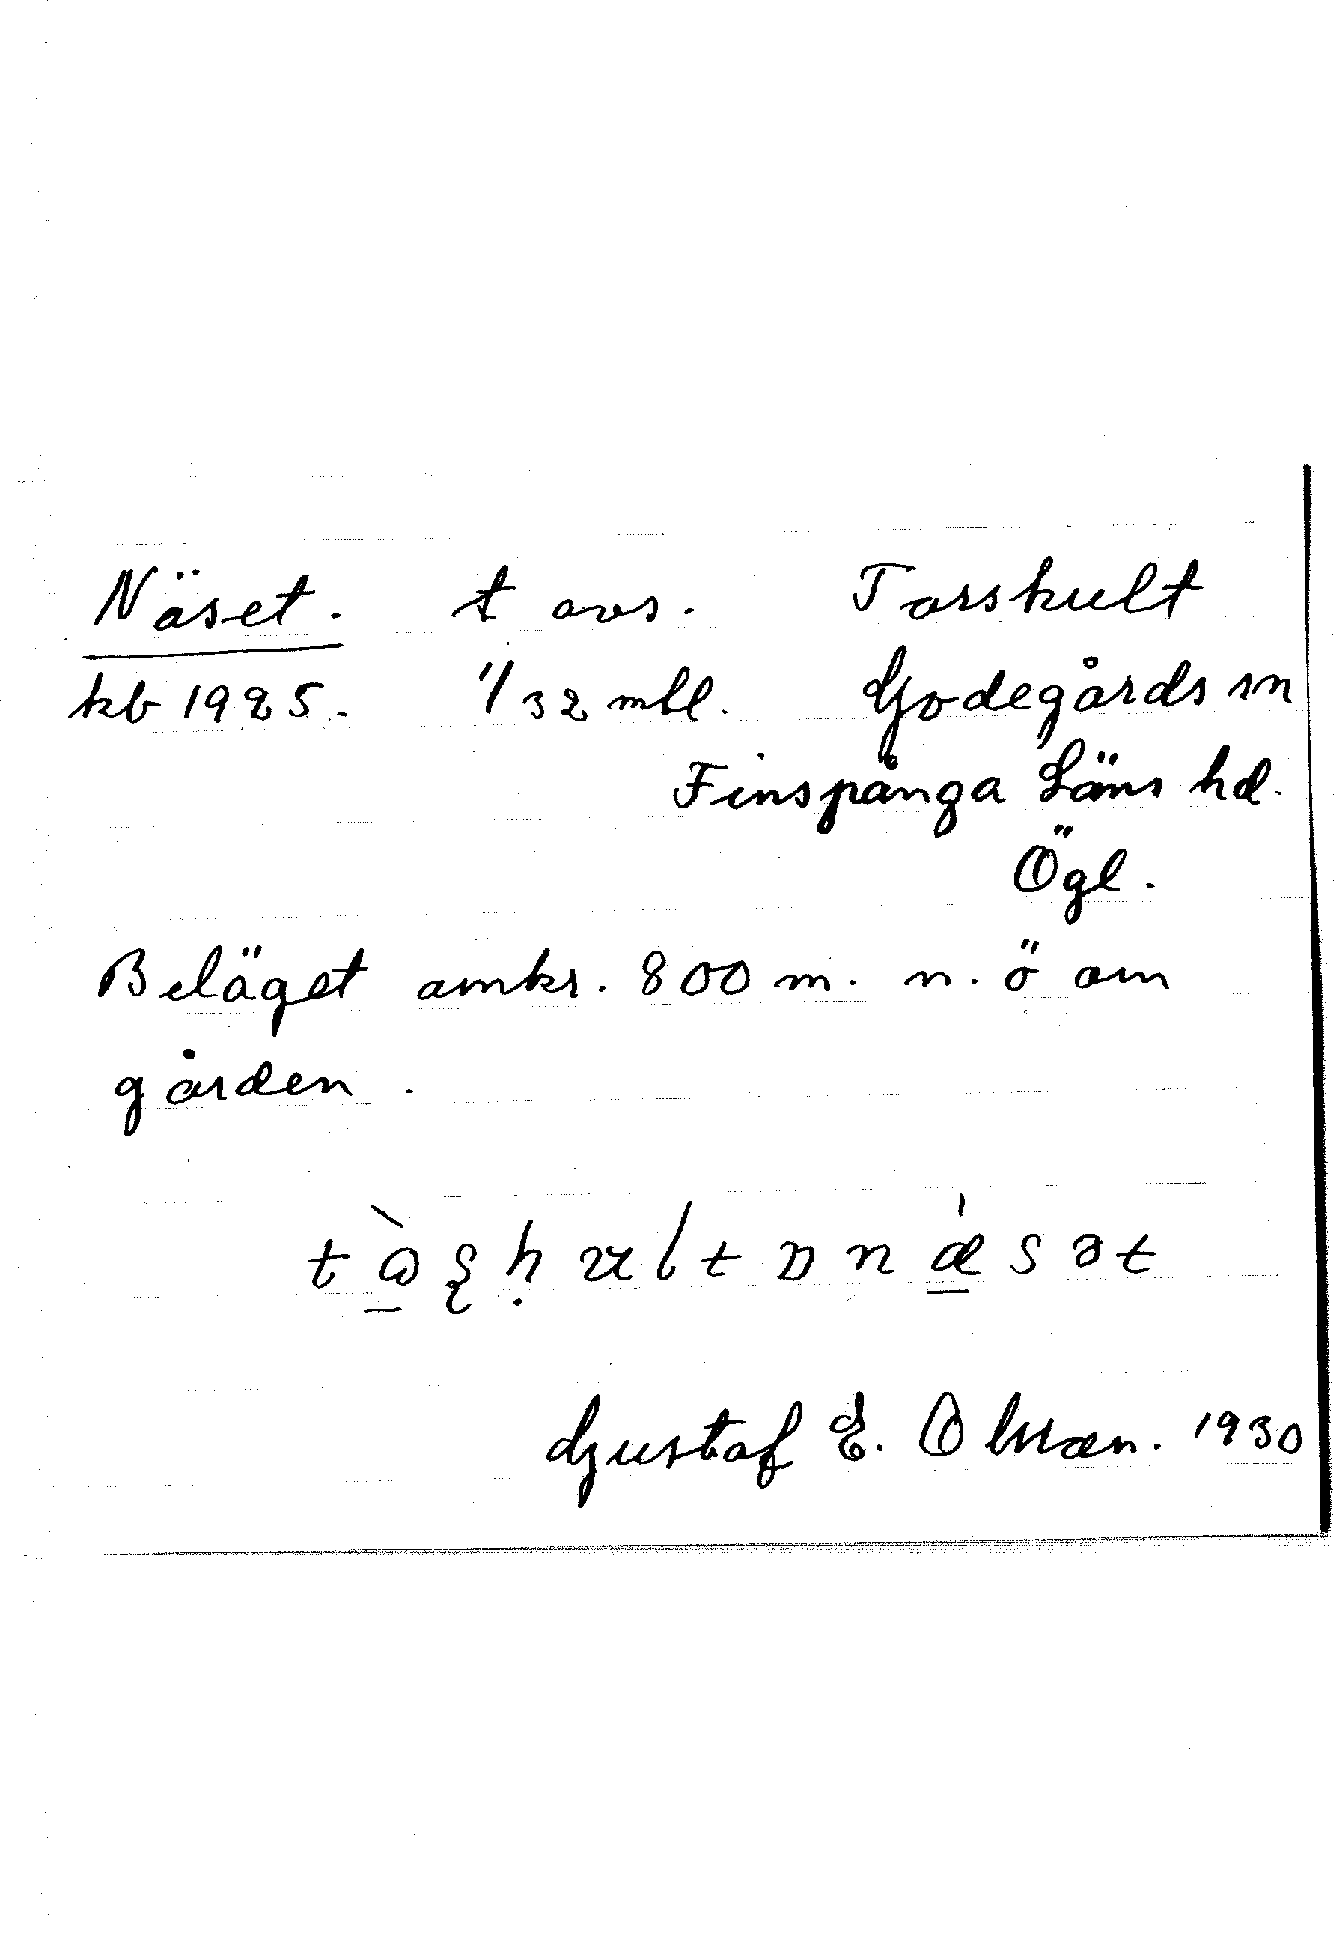 Näset. t avs. Torskult
kb 1925. 1/32 mtl. Godegårds sn
Finspånga Läns hd.
Ögl.
Beläget omkr. 800 m. n. ö om
gården.
Gustaf E. Olsson. 1930